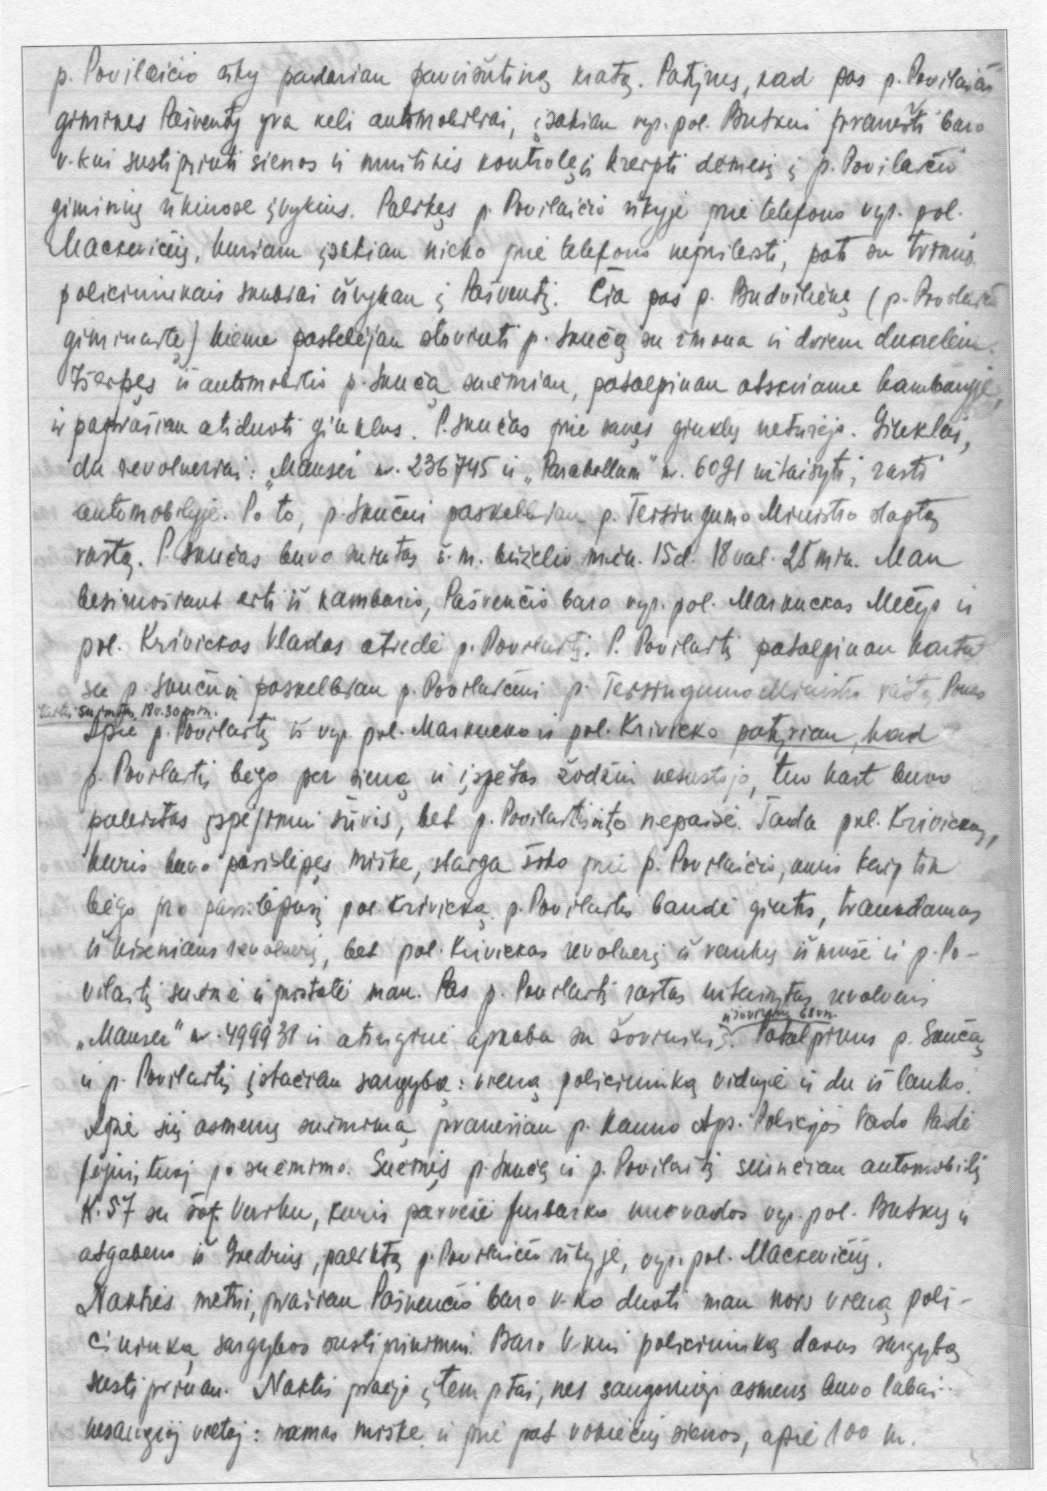 p. Povilaičio ūky padariau paviršutinę kratą. Patyręs, kad pas p. Povilaičio
gimines Pašventy yra keli automobiliai, įsakiau vyr. pol. Butkui pranešti baro
v-kui sustiprinti sienos ir muitinės kontrolę ir kreipti dėmesį į p. Povilaičio
giminių ūkiuose įvykius. Palikęs p. Povilaičio ūkyje prie telefono vyr. pol.
Mackevičių, kuriam įsakiau nieko prie telefono neprileisti, pats su trimis
policininkais skubiai išvykau į Pašventį. Čia pas p. Budvilienę (p. Povilaičio
giminaitę) kieme pastebėjau stovintį p. Skučą su žmona ir dviem dukrelėm.
Iškopęs iš automobilio p. Skučą suėmiau, patalpinau atskirame kambaryje,
ir paprašiau atiduoti ginklus. P. Skučas prie savęs ginklų neturėjo. Ginklai,
du revolveriai: „Mauser nr. 236745 ir „Parabellum" nr. 6091 užtaisyti, rasti
automobilyje. Po to, p. Skučui paskelbiau p. Teisingumo Ministro slaptą
raštą. P. Skučas buvo suimtas š. m. birželio mėn. 15 d. 18 val. 25 min. Man
besiruošiant eiti iš kambario, Pašvenčio baro vyr. pol. Markuckas Mečys ir
pol. Krivickas Vladas atvedė p. Povilaitį. P. Povilaitį patalpinau kartu
su p. Skuču ir paskelbiau p. Povilaičiui p. Teisingumo Ministro raštą.
suimtas 18 v. 30 min.
Apie p. Povilaitį iš vyr. pol. Markucko ir pol. Krivicko patyriau, kad
p. Povilaitį bėgo per sieną ir įspėtas žodžiu nesustojo, tuo kart buvo
paleistas įspėjimui šūvis, bet p. Povilaitis į tą nepaisė. Tada pol. Krivickas,
kuris buvo pasislėpęs miške, staiga šoko prie p. Povilaičio, kuris kaip tik
bėgo pro pasislėpusį pol. Krivicką. p. Povilaitis bandė gintis, traukdamas
iš kišeniaus revolverį, bet pol. Krivickas revolverį iš rankų išmušė ir p. Po-
vilaitį suėmė ir pristatė man. Pas p. Povilaitį rastas užtaisytas revolveris
ir šovinių 68 vn.
„Mauser" nr. 499931 ir atsarginė apkaba su šoviniais. Patalpinus p. Skučą
ir p. Povilaitį įstačiau sargybą: vieną policininką viduje ir du iš lauko.
Apie šių asmenų suėmimą pranešiau p. Kauno Aps. Policijos Vado Padė
jėjui, tuoj po suėmimo. Suėmęs p. Skučą ir p. Povilaitį siunčiau automobilį
K. 57 su šof. Varku, kuris parvežė Jurbarko nuovados vyr. pol. Butkų ir
atgabeno iš Gedrių, paliktą p. Povilaičio ūkyje, vyr. pol. Mackevičių.
Nakties metui, prašiau Pašvenčio baro v-ko duoti man nors vieną poli-
cininką sargybos sustiprinimui. Baro V-kui policininką davus sargybą
sustiprinau. Naktis praėjo įtemptai, nes saugomieji asmens buvo labai
nesaugioj vietoj: namas miške ir prie pat vokiečių sienos, apie 100 m.